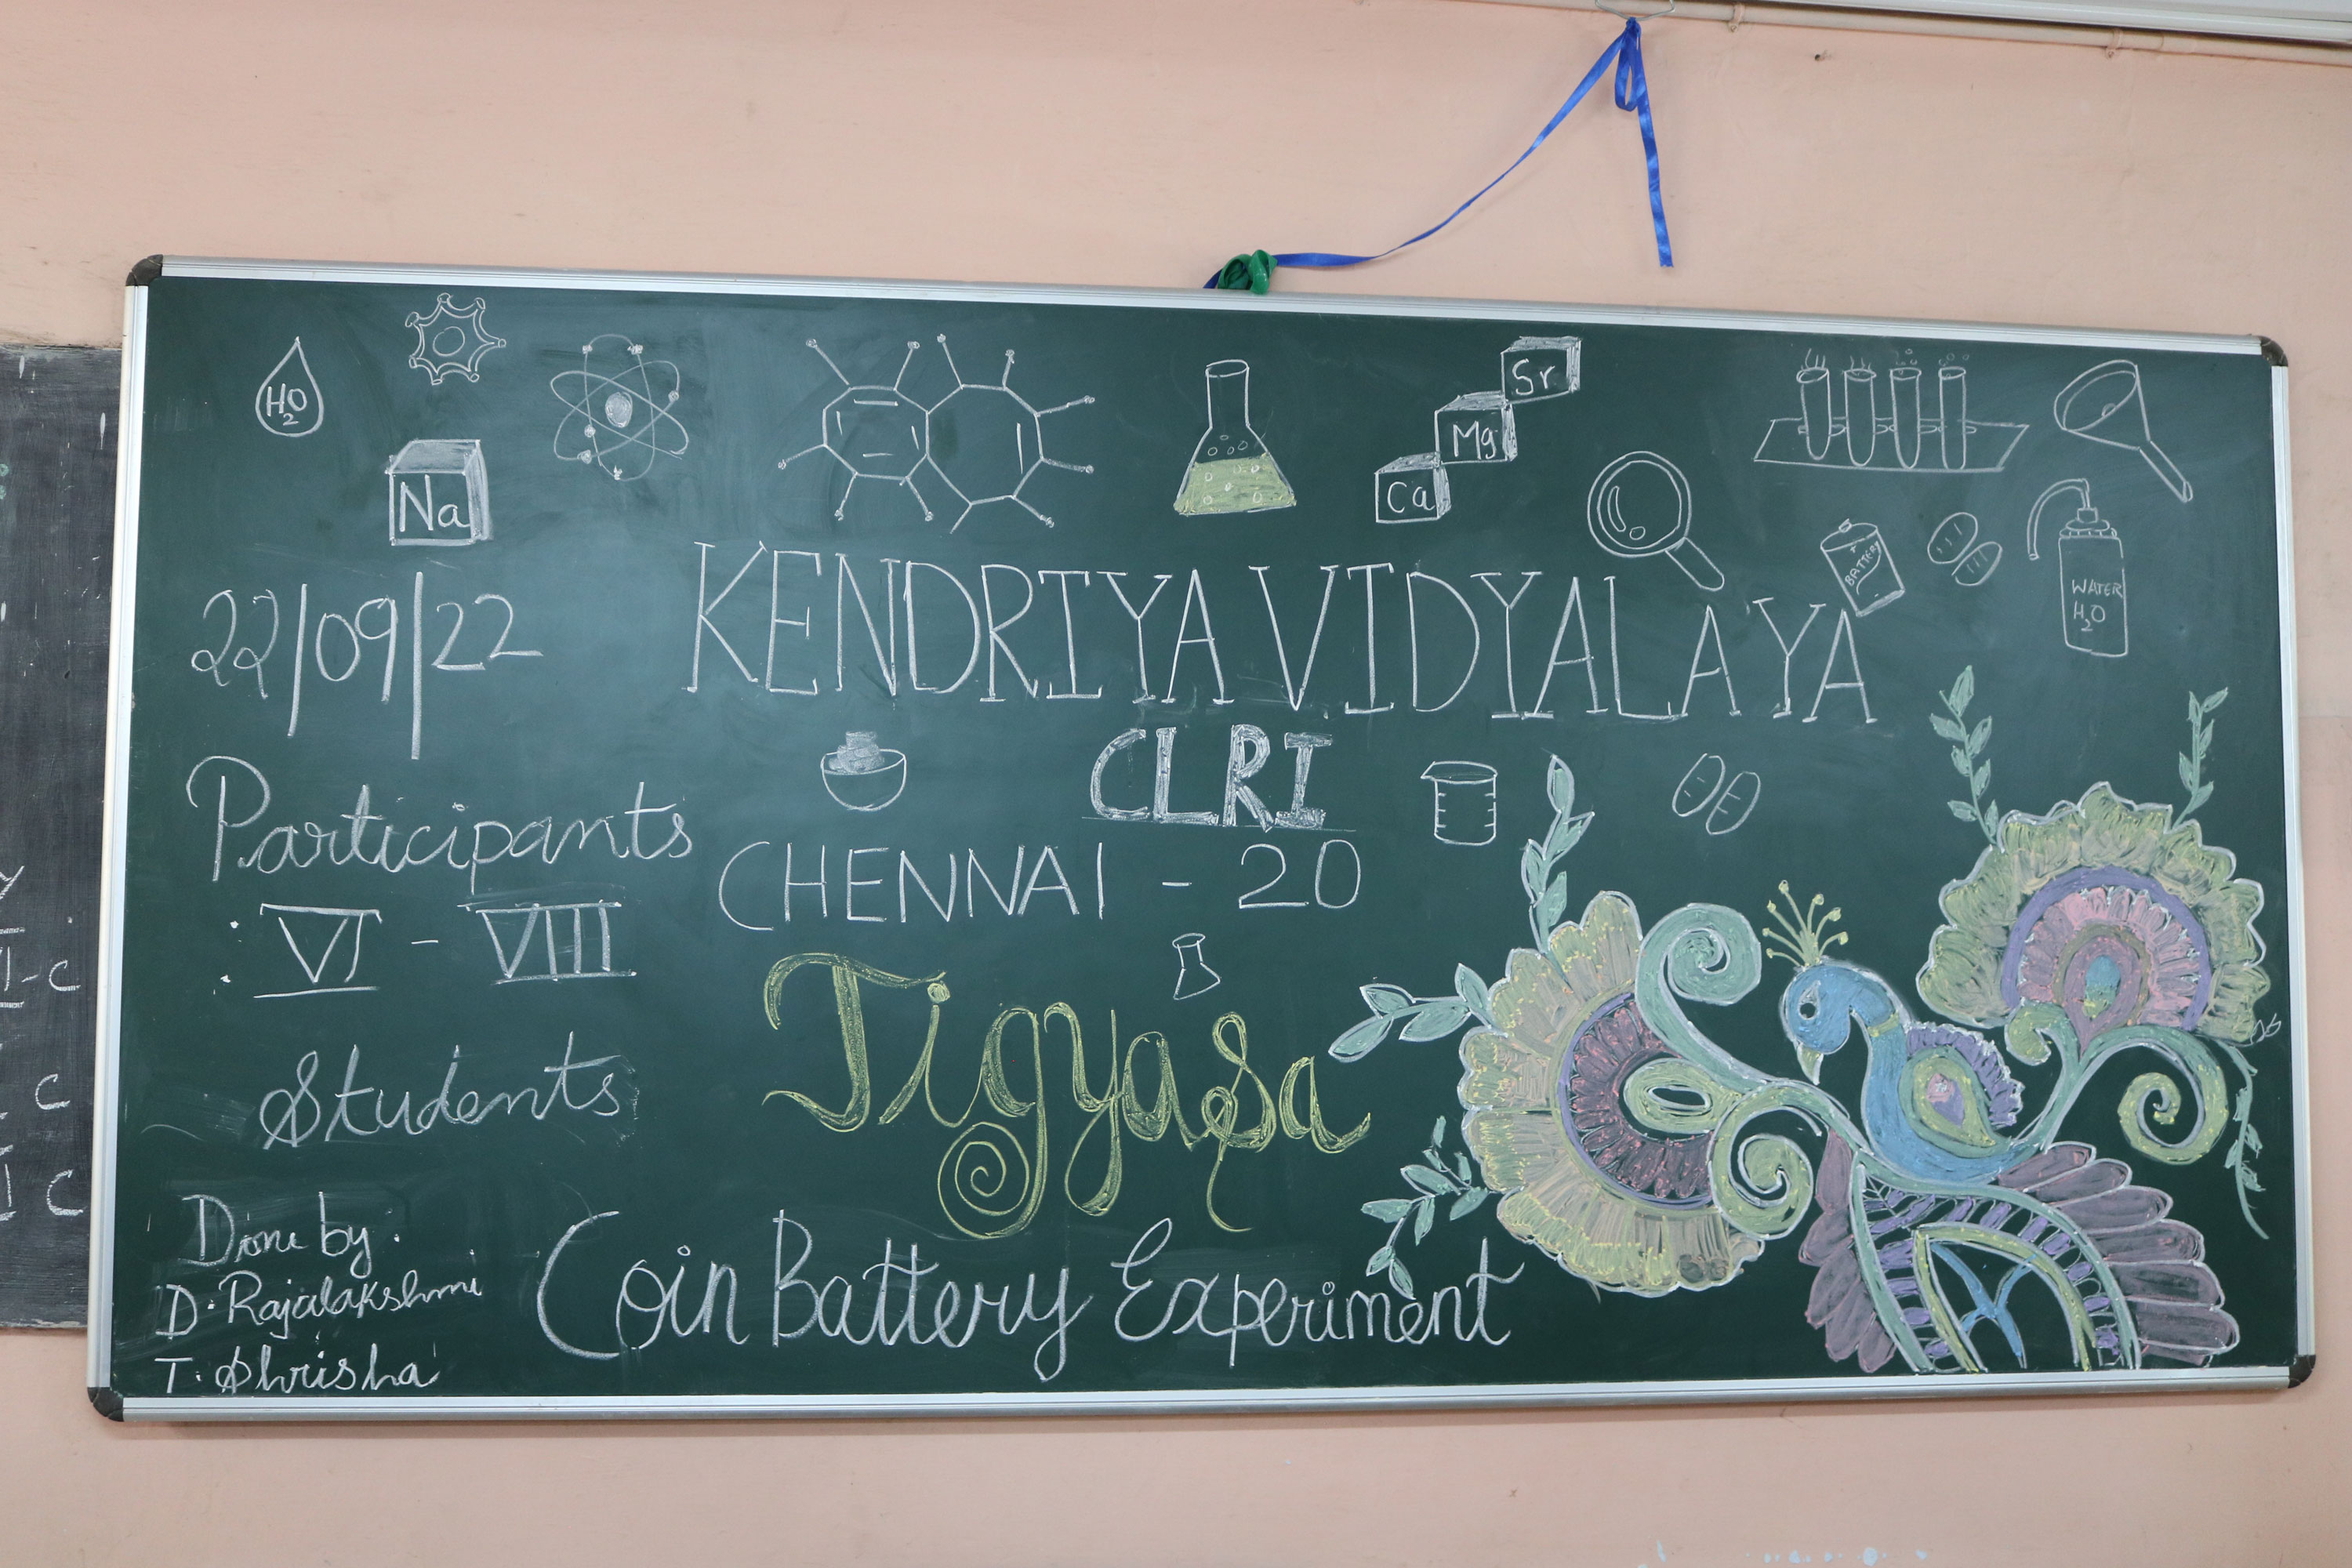 H2O
Na
Sr
Mg
Ca
BATTERY
WATER
H2O
22/09/22
KENDRIYA VIDYALAYA
CLRI
CHENNAI - 20
Participants
: VI - VIII
Students
Jigyasa
Coin Battery Experiment
Done by.
D. Rajalakshmi
T. Shrisha
C
C
C